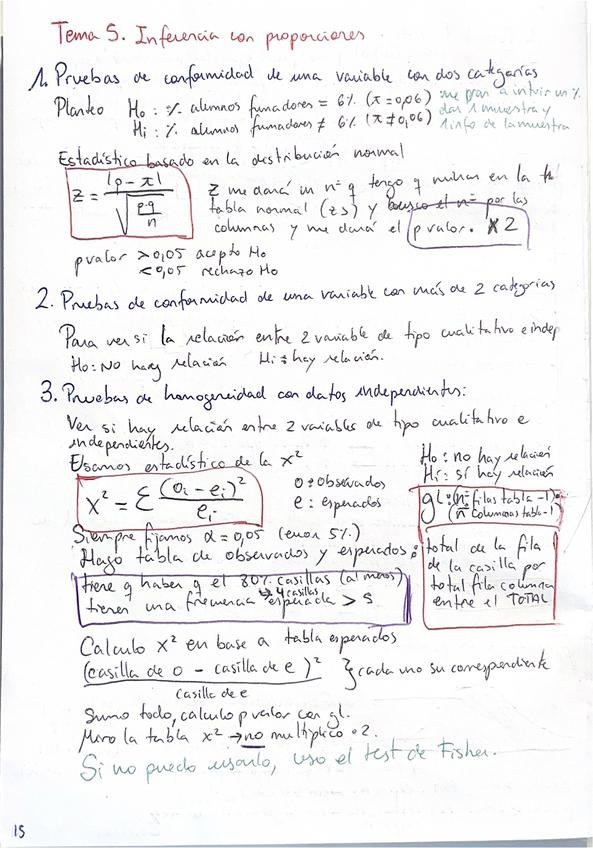 Tema 5. Inferencia con proporciones
1. Pruebas de conformidad de una variable con dos categorías
Planteo Ho: % alumnos fumadores = 6% (π=0,06) me van a
Hi: % alumnos fumadores ≠ 6% (π≠0,06) dar 1 muestra y
1 info de la muestra
Estadístico basado en la distribución normal
z = |p - π| / √(p·q / n)
z me dará un nº q tengo q mirar en la
tabla normal (zs) y busco el nº por las
columnas y me dará el p valor. x 2
p valor > 0,05 acepto Ho
< 0,05 rechazo Ho
2. Pruebas de conformidad de una variable con más de 2 categorías
Para ver si la relación entre 2 variable de tipo cualitativo e indep
Ho: NO hay relación Hi: hay relación.
3. Pruebas de homogeneidad con datos independientes:
Ver si hay relación entre 2 variables de tipo cualitativo e
independientes.
Usamos estadístico de la x²
Ho: no hay relación
Hi: sí hay relación
x² = Σ (oi - ei)² / ei
o: observados
e: esperados
gl: (nº filas tabla -1)·
(nº columnas tabla -1)
Siempre fijamos α = 0,05 (error 5%)
Hago tabla de observados y esperados:
total de la fila
de la casilla por
total fila columna
entre el TOTAL
tiene q haber q el 80% casillas (al menos)
4 casillas
tienen una frecuencia esperada > 5
Calculo x² en base a tabla esperados
(casilla de o - casilla de e)² } cada uno su correspondiente
casilla de e
Sumo todo, calculo p valor con gl.
Miro la tabla x² → no multiplico · 2.
Si no puedo usarlo, uso el test de Fisher.
15